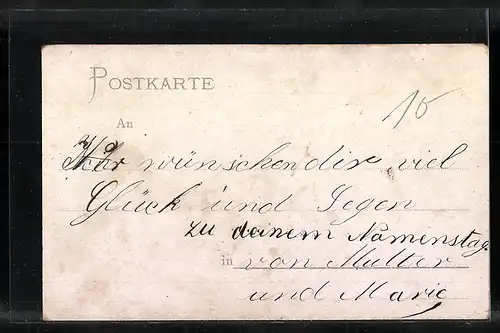 POSTKARTE
10
An
Wir wünschen dir viel
Glück und Segen
zu deinem Namenstag
in von Mutter
und Marie